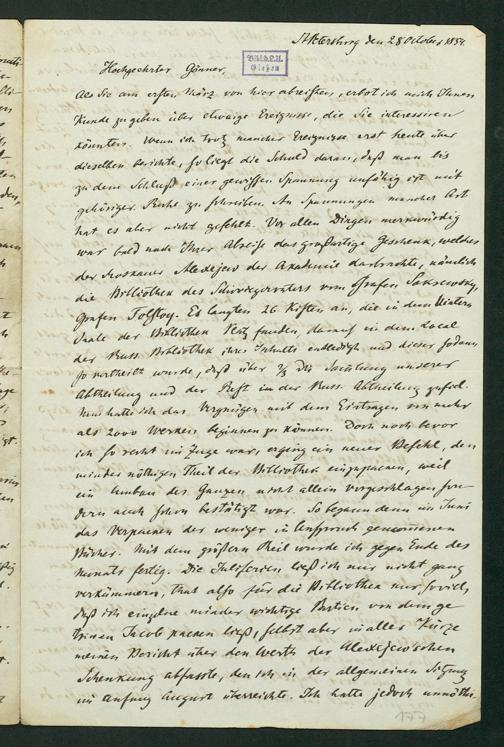 St. Petersburg den 28 October 1854.
Hochgeehrter Gönner.
Als Sie am ersten März von hier abreisten, erbot ich mich Ihnen
Kunde zu geben über etwaige Ereignisse, die Sie interessiren
könnten. Wenn ich trotz mancher Ereignisse erst heute über
dieselben berichte, so liegt die Schuld daran, daß man bis
zu dem Schluß einer gewissen Spannung unfähig ist mit
gehöriger Ruhe zu schreiben. An Spannungen mancher Art
hat es aber nicht gefehlt. Vor allen Dingen merkwürdig
war bald nach Ihrer Abreise das großartige Geschenk, welches
der Moskauer Alexejew der Akademie darbrachte, nämlich
die Bibliothek des Schwiegervaters vom Grafen Sakrewsky,
Grafen Tolstoy. Es langten 26 Kisten an, die in dem untern
Saale der Bibliothek Platz fanden, darauf in dem Local
der Russ. Bibliothek ihres Inhalts entledigt und dieser sodann
so vertheilt wurde, daß über 2/3 der Sammlung unserer
Abtheilung und der Rest in der Russ. Abtheilung zufiel.
Nun hatte ich das Vergnügen mit dem Eintragen von mehr
als 2000 Werken beginnen zu können. Doch noch bevor
ich so recht im Zuge war, erging ein neuer Befehl, den
minder nöthigen Theil der Bibliothek einzupacken, weil
ein Umbau des Ganzen nicht allein vorgeschlagen son-
dern auch schon bestätigt war. So begann denn im Juni
das Verpacken der weniger in Anspruch genommenen
Bücher. Mit dem größern Theil wurde ich gegen Ende des
Monats fertig. Die Juliferien ließ ich mir nicht ganz
verkümmern, that also für die Bibliothek nur soviel,
daß ich einzelne minder wichtige Partien von dem ge-
treuen Jacob packen ließ, selbst aber in aller Kürze
meinen Bericht über den Werth der Alexejew'schen
Schenkung abfaßte, den ich in der allgemeinen Sitzung
im Anfang August überreichte. Ich hatte jedoch unnöthi-
177